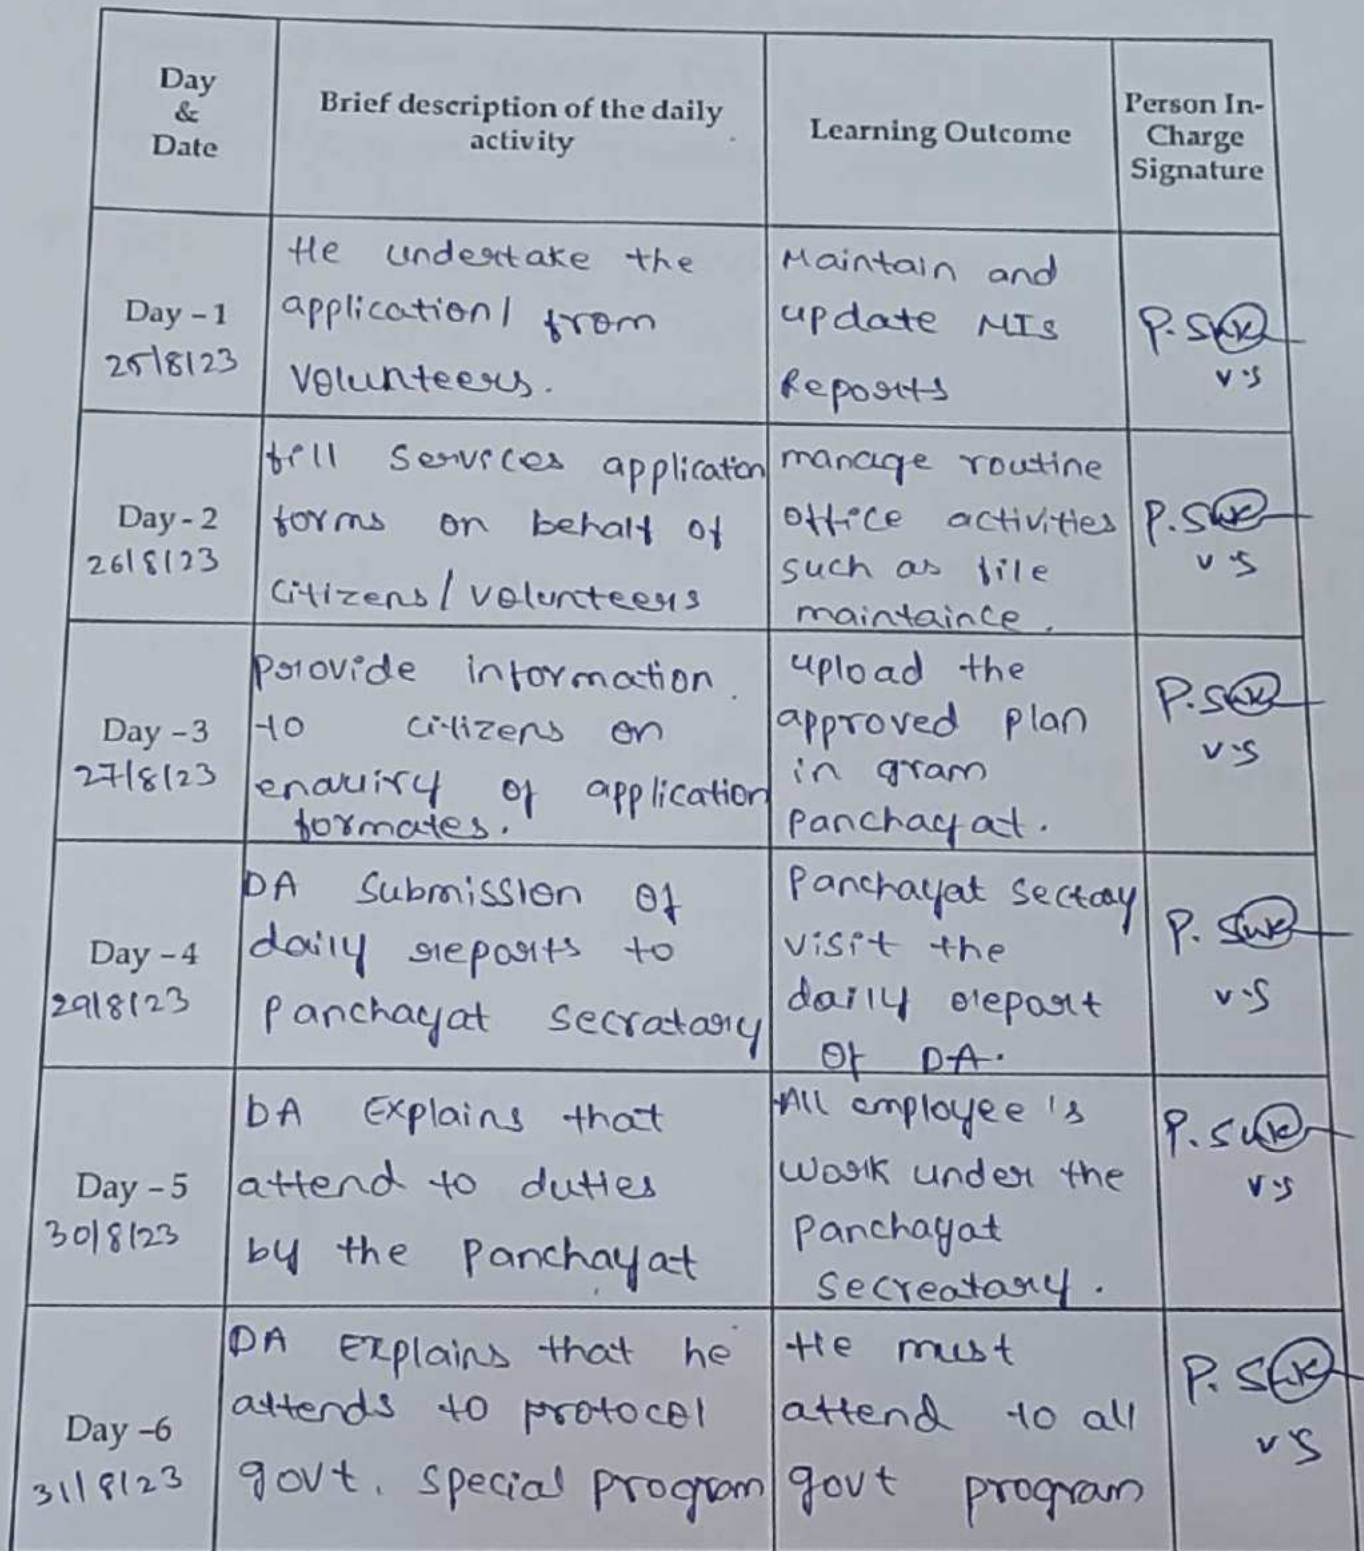 Day
&
Date
Brief description of the daily
activity
Learning Outcome
Person In-
Charge
Signature
Day - 1
25/8/23
He undertake the
application/ from
volunteers.
Maintain and
update MIS
Reports
P.
v.s
Day - 2
26/8/23
fill services application
forms on behalf of
citizens/volunteers
manage routine
office activities
such as file
maintaince.
P.
v.s
Day - 3
27/8/23
provide information
to citizens on
enquiry of application
formates.
upload the
approved plan
in gram
panchayat.
P.
v.s
Day - 4
29/8/23
DA submission of
daily reports to
panchayat secratary
Panchayat sectay
visit the
daily report
of DA.
P.
v.s
Day - 5
30/8/23
DA Explains that
attend to duties
by the panchayat
All employee's
work under the
panchayat
secreatary.
P.
v.s
Day -6
31/8/23
DA Explains that he
attends to protocol
govt. special program
He must
attend to all
govt program
P.
v.s